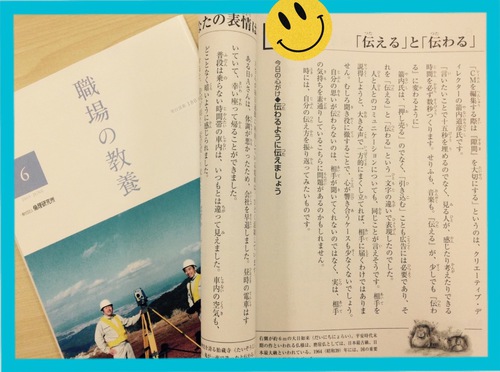 職場の教養
6
倫理研究所
なたの表情は
「伝える」と「伝わる」
「CMを編集する際は『隙間』を大切にする」というのは、クリエイティブ・デ
ィレクターの箭内道彦氏です。
「言いたいことで十五秒を埋めるのでなく、見る人が、感じたり考えたりできる
時間を必ず数秒つくります。せりふも、音楽も、『伝える』が、少しでも『伝わ
る』に変わるように」
箭内氏は、「押し売る」のでなく、「引き込む」ことも広告には必要であり、そ
れを「伝える」と「伝わる」という一文字の違いで表現したのでした。
人と人とのコミュニケーションについても、同じことが言えそうです。相手を
説得しようと、大きな声で一方的にまくし立てれば、相手に届くわけではありま
せん。むしろ聞き役に徹することで、心が響き合うケースも少なくないでしょう。
自分の思いが伝わらないのは、相手が聞いてくれないのではなく、実は、相手
の気持ちを素通りしているこちらに問題があるのかもしれません。
時には、自分の伝え方を振り返ってみたいものです。
今日の心がけ◆伝わるように伝えましょう
ある日Aさんは、体調が悪かったため、会社を早退しました。昼時の電車はす
いていて、幸い座って帰ることができました。
普段は乗らない時間帯の車内は、いつもとは違って見えました。車内の空気も、
どことなく重いように感じられました。